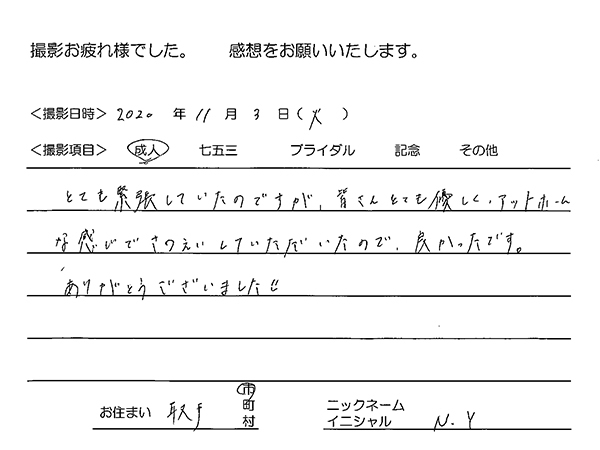 撮影お疲れ様でした。　感想をお願いいたします。
＜撮影日時＞ 2020 年 11 月 3 日（火）
＜撮影項目＞ 成人　七五三　ブライダル　記念　その他
とても緊張していたのですが、皆さんとても優しく、アットホーム
な感じでさつえいしていただいたので、良かったです。
ありがとうございました!!
お住まい 取手 市町村　ニックネーム イニシャル N.Y